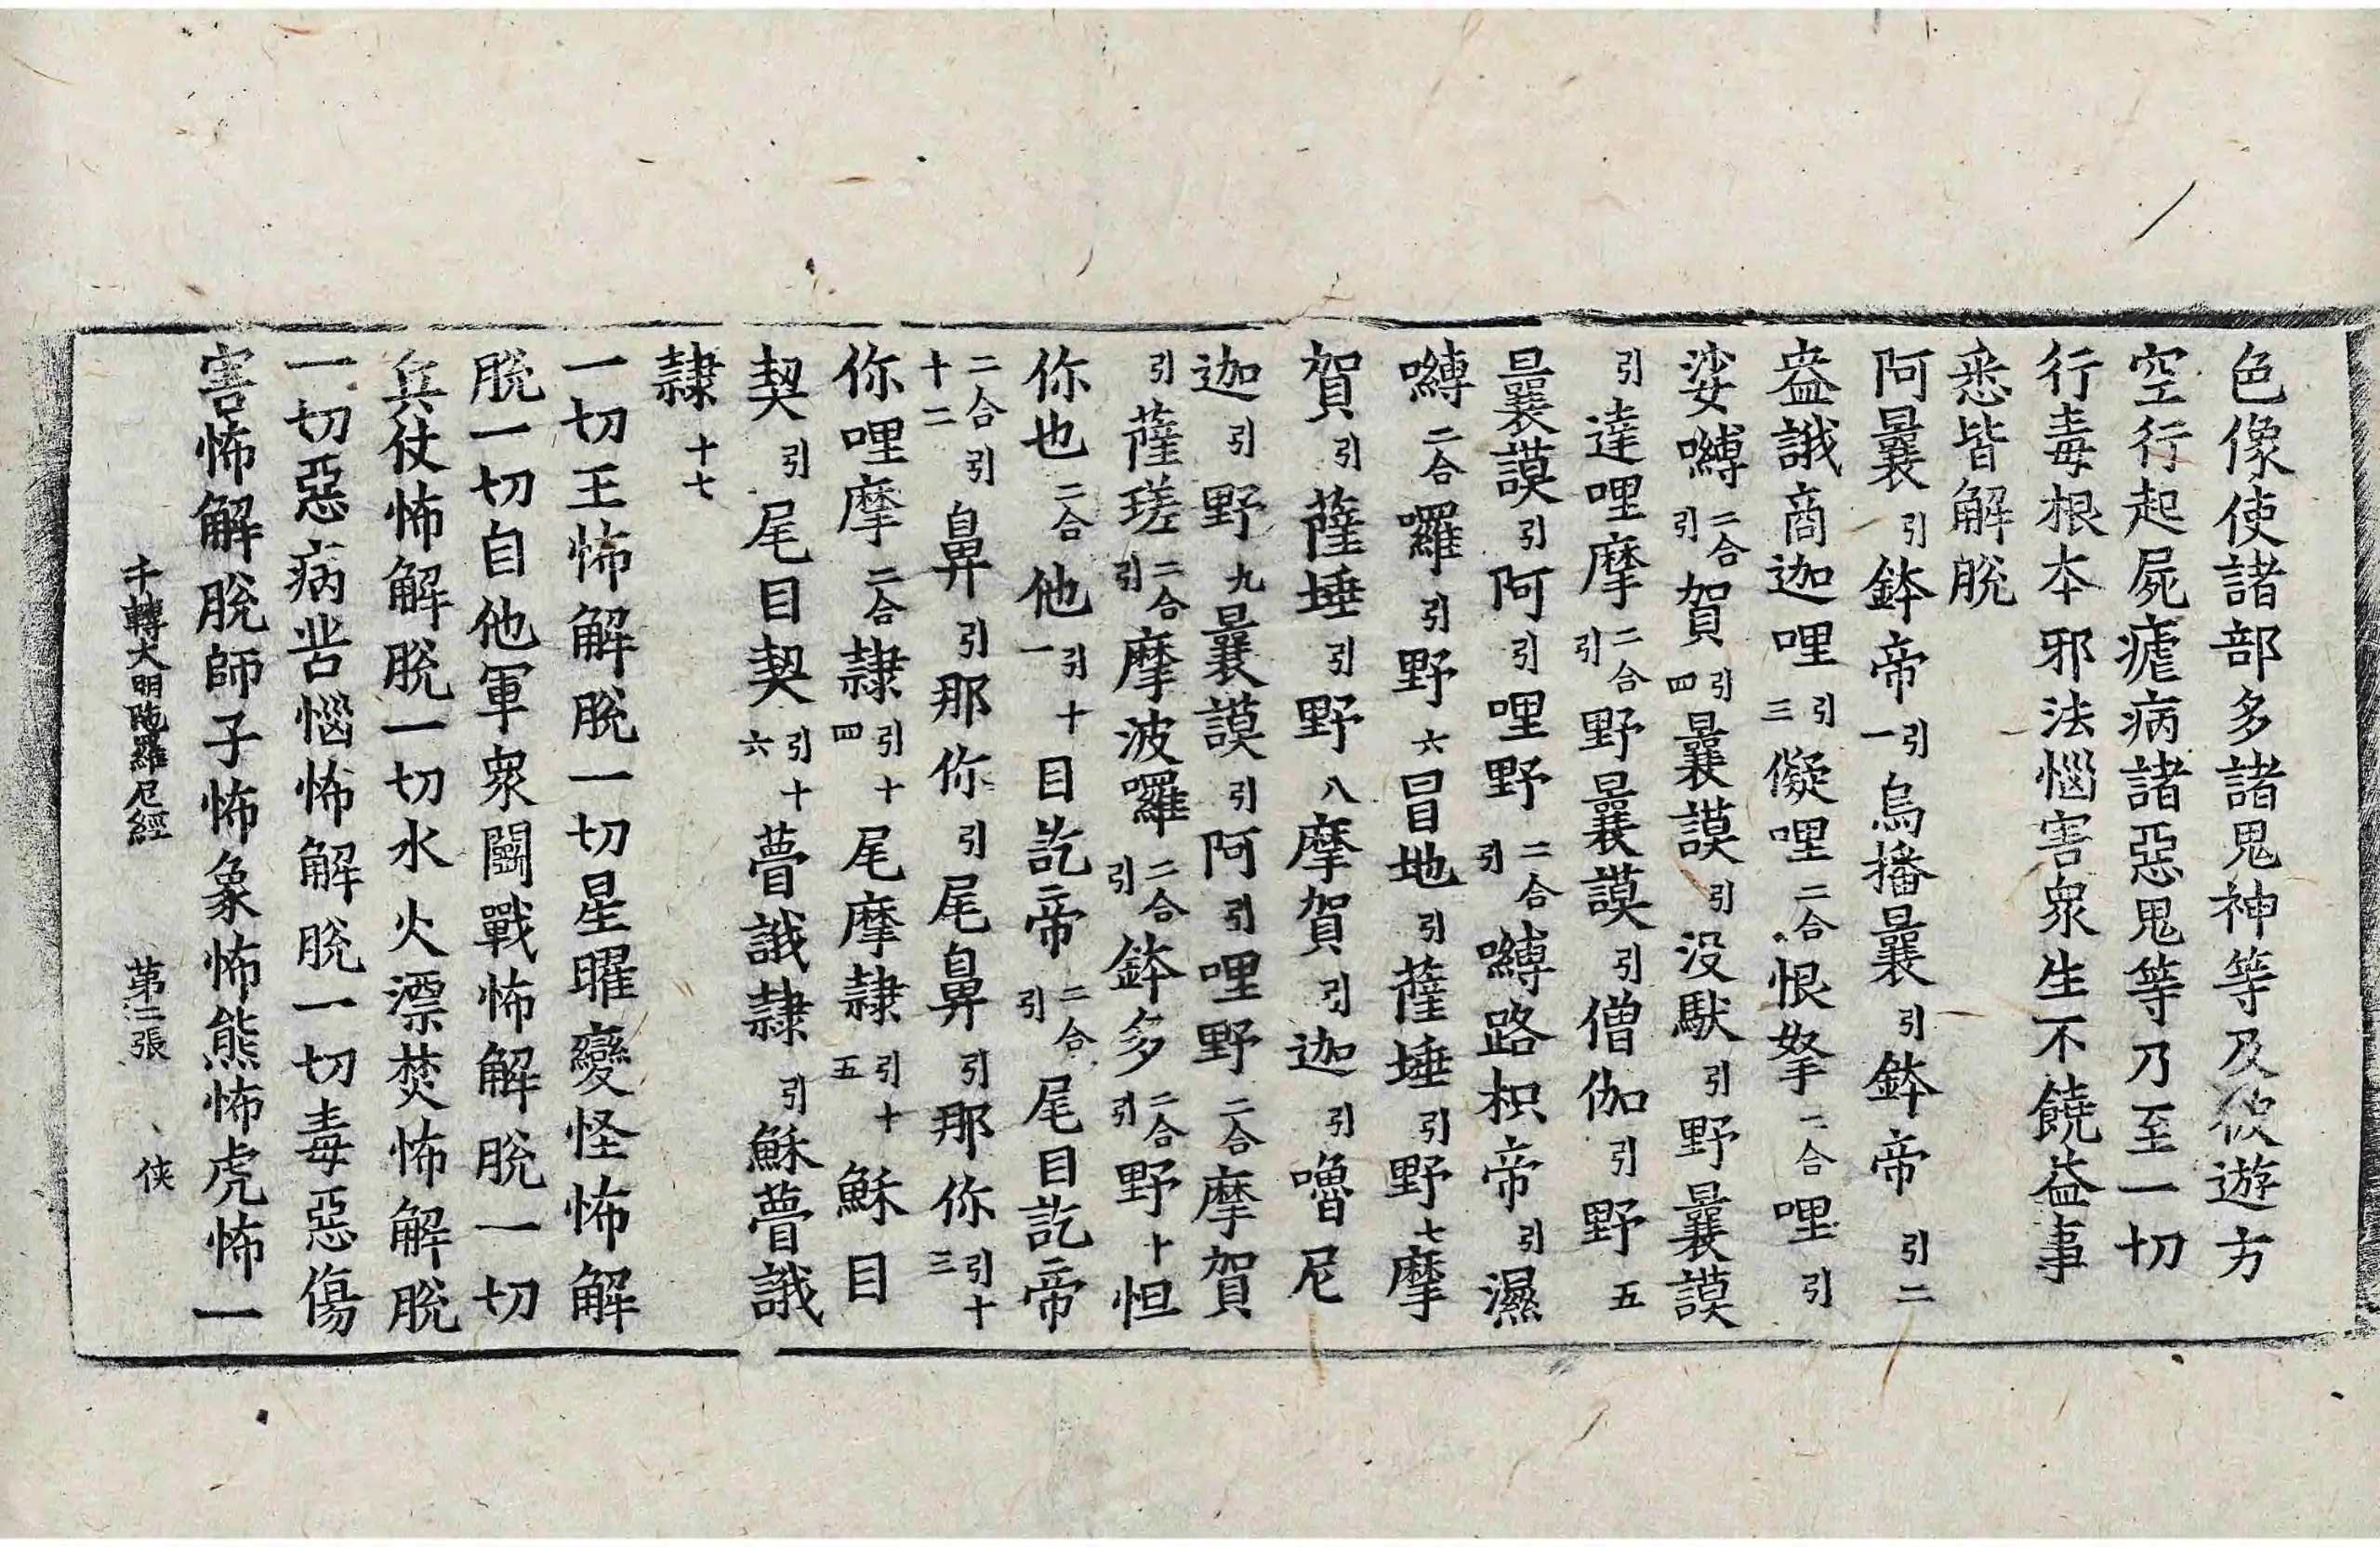 色像使諸部多諸鬼神等及彼遊方
空行起屍瘧病諸惡鬼等乃至一切
行毒根本邪法惱害衆生不饒益事
悉皆解脫
阿曩引鉢帝引一烏播曩引鉢帝引二
盎誐商迦哩引三儗哩二合恨拏二合哩引
娑嚩二合引賀引四曩謨引没馱引野曩謨
引達哩摩二合引野曩謨引僧伽引野五
曩謨引阿引哩野二合引嚩路枳帝引濕
嚩二合囉引野六冒地引薩埵引野七摩
賀引薩埵引野八摩賀引迦引嚕尼
迦引野九曩謨引阿引哩野二合摩賀
引薩瑳二合引摩波囉二合引鉢多二合引野十怛
你也二合他引十一目訖帝二合引尾目訖帝
二合引十二鼻引那你引尾鼻引那你引十三
你哩摩二合隷引十四尾摩隷引十五穌目
契引尾目契引十六瞢誐隷引穌瞢誐
隷十七
一切王怖解脫一切星曜變怪怖解
脫一切自他軍衆鬬戰怖解脫一切
兵仗怖解脫一切水火漂焚怖解脫
一切惡病苦惱怖解脫一切毒惡傷
害怖解脫師子怖象怖熊怖虎怖一
千轉大明陁羅尼經 第二張 俠